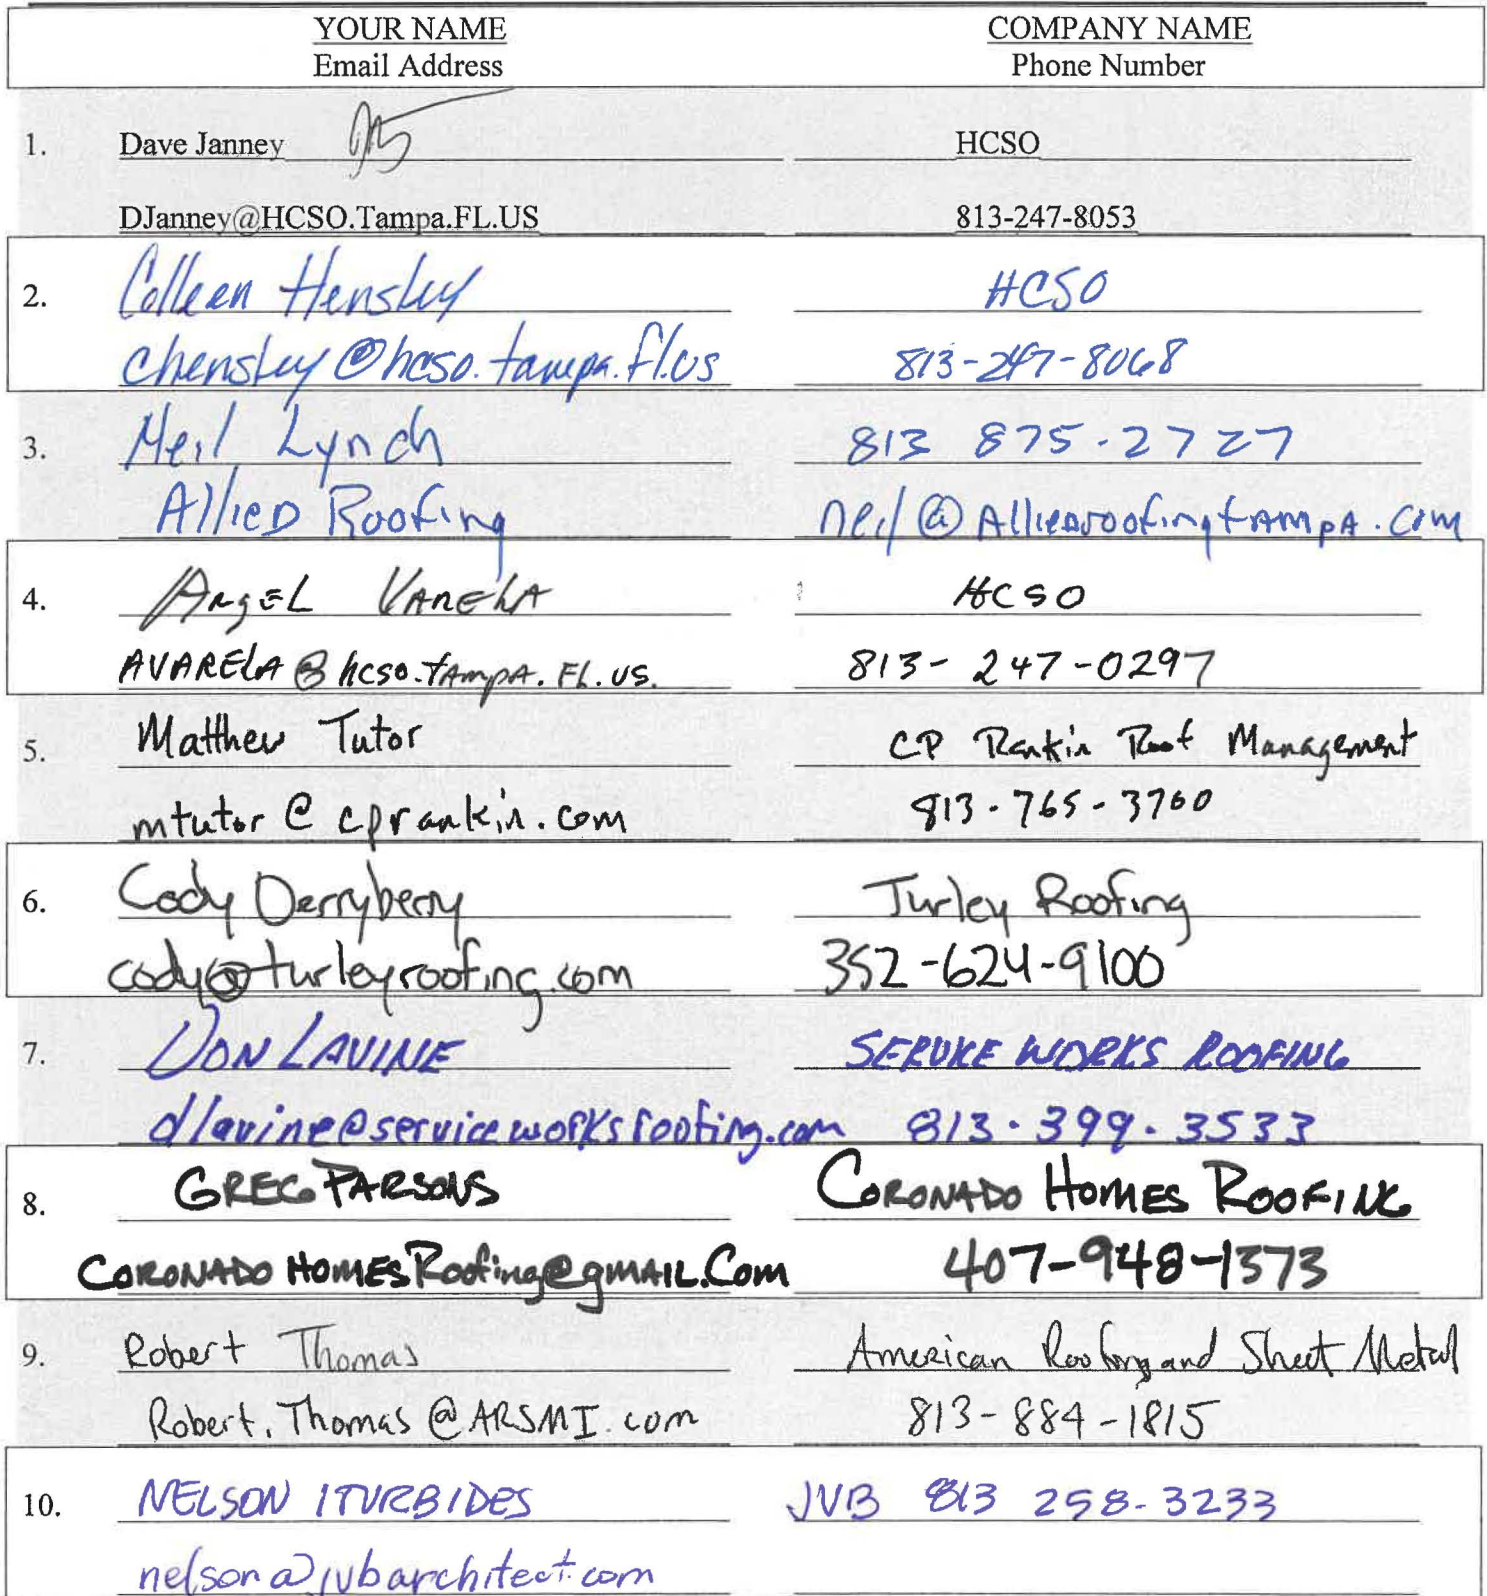 YOUR NAME COMPANY NAME
Email Address Phone Number
1. Dave Janney HCSO
DJanney@HCSO.Tampa.FL.US 813-247-8053
2. Colleen Hensley HCSO
chensley@hcso.tampa.fl.us 813-247-8068
3. Neil Lynch 813 875-2727
Allied Roofing neil@Alliedroofingtampa.com
4. Angel Varela HCSO
AVARELA@hcso.tampa.FL.US. 813-247-0297
5. Matthew Tutor CP Rankin Roof Management
mtutor@cprankin.com 813-765-3760
6. Cody Derryberry Turley Roofing
cody@turleyroofing.com 352-624-9100
7. DON LAVINE SERVICE WORKS ROOFING
dlavine@serviceworksroofing.com 813.399.3533
8. GREG PARSONS CORONADO HOMES ROOFING
CORONADOHOMESRoofing@gMAIL.Com 407-948-1373
9. Robert Thomas American Roofing and Sheet Metal
Robert.Thomas@ARSMI.com 813-884-1815
10. NELSON ITURBIDES JVB 813 258-3233
nelson@jvbarchitect.com